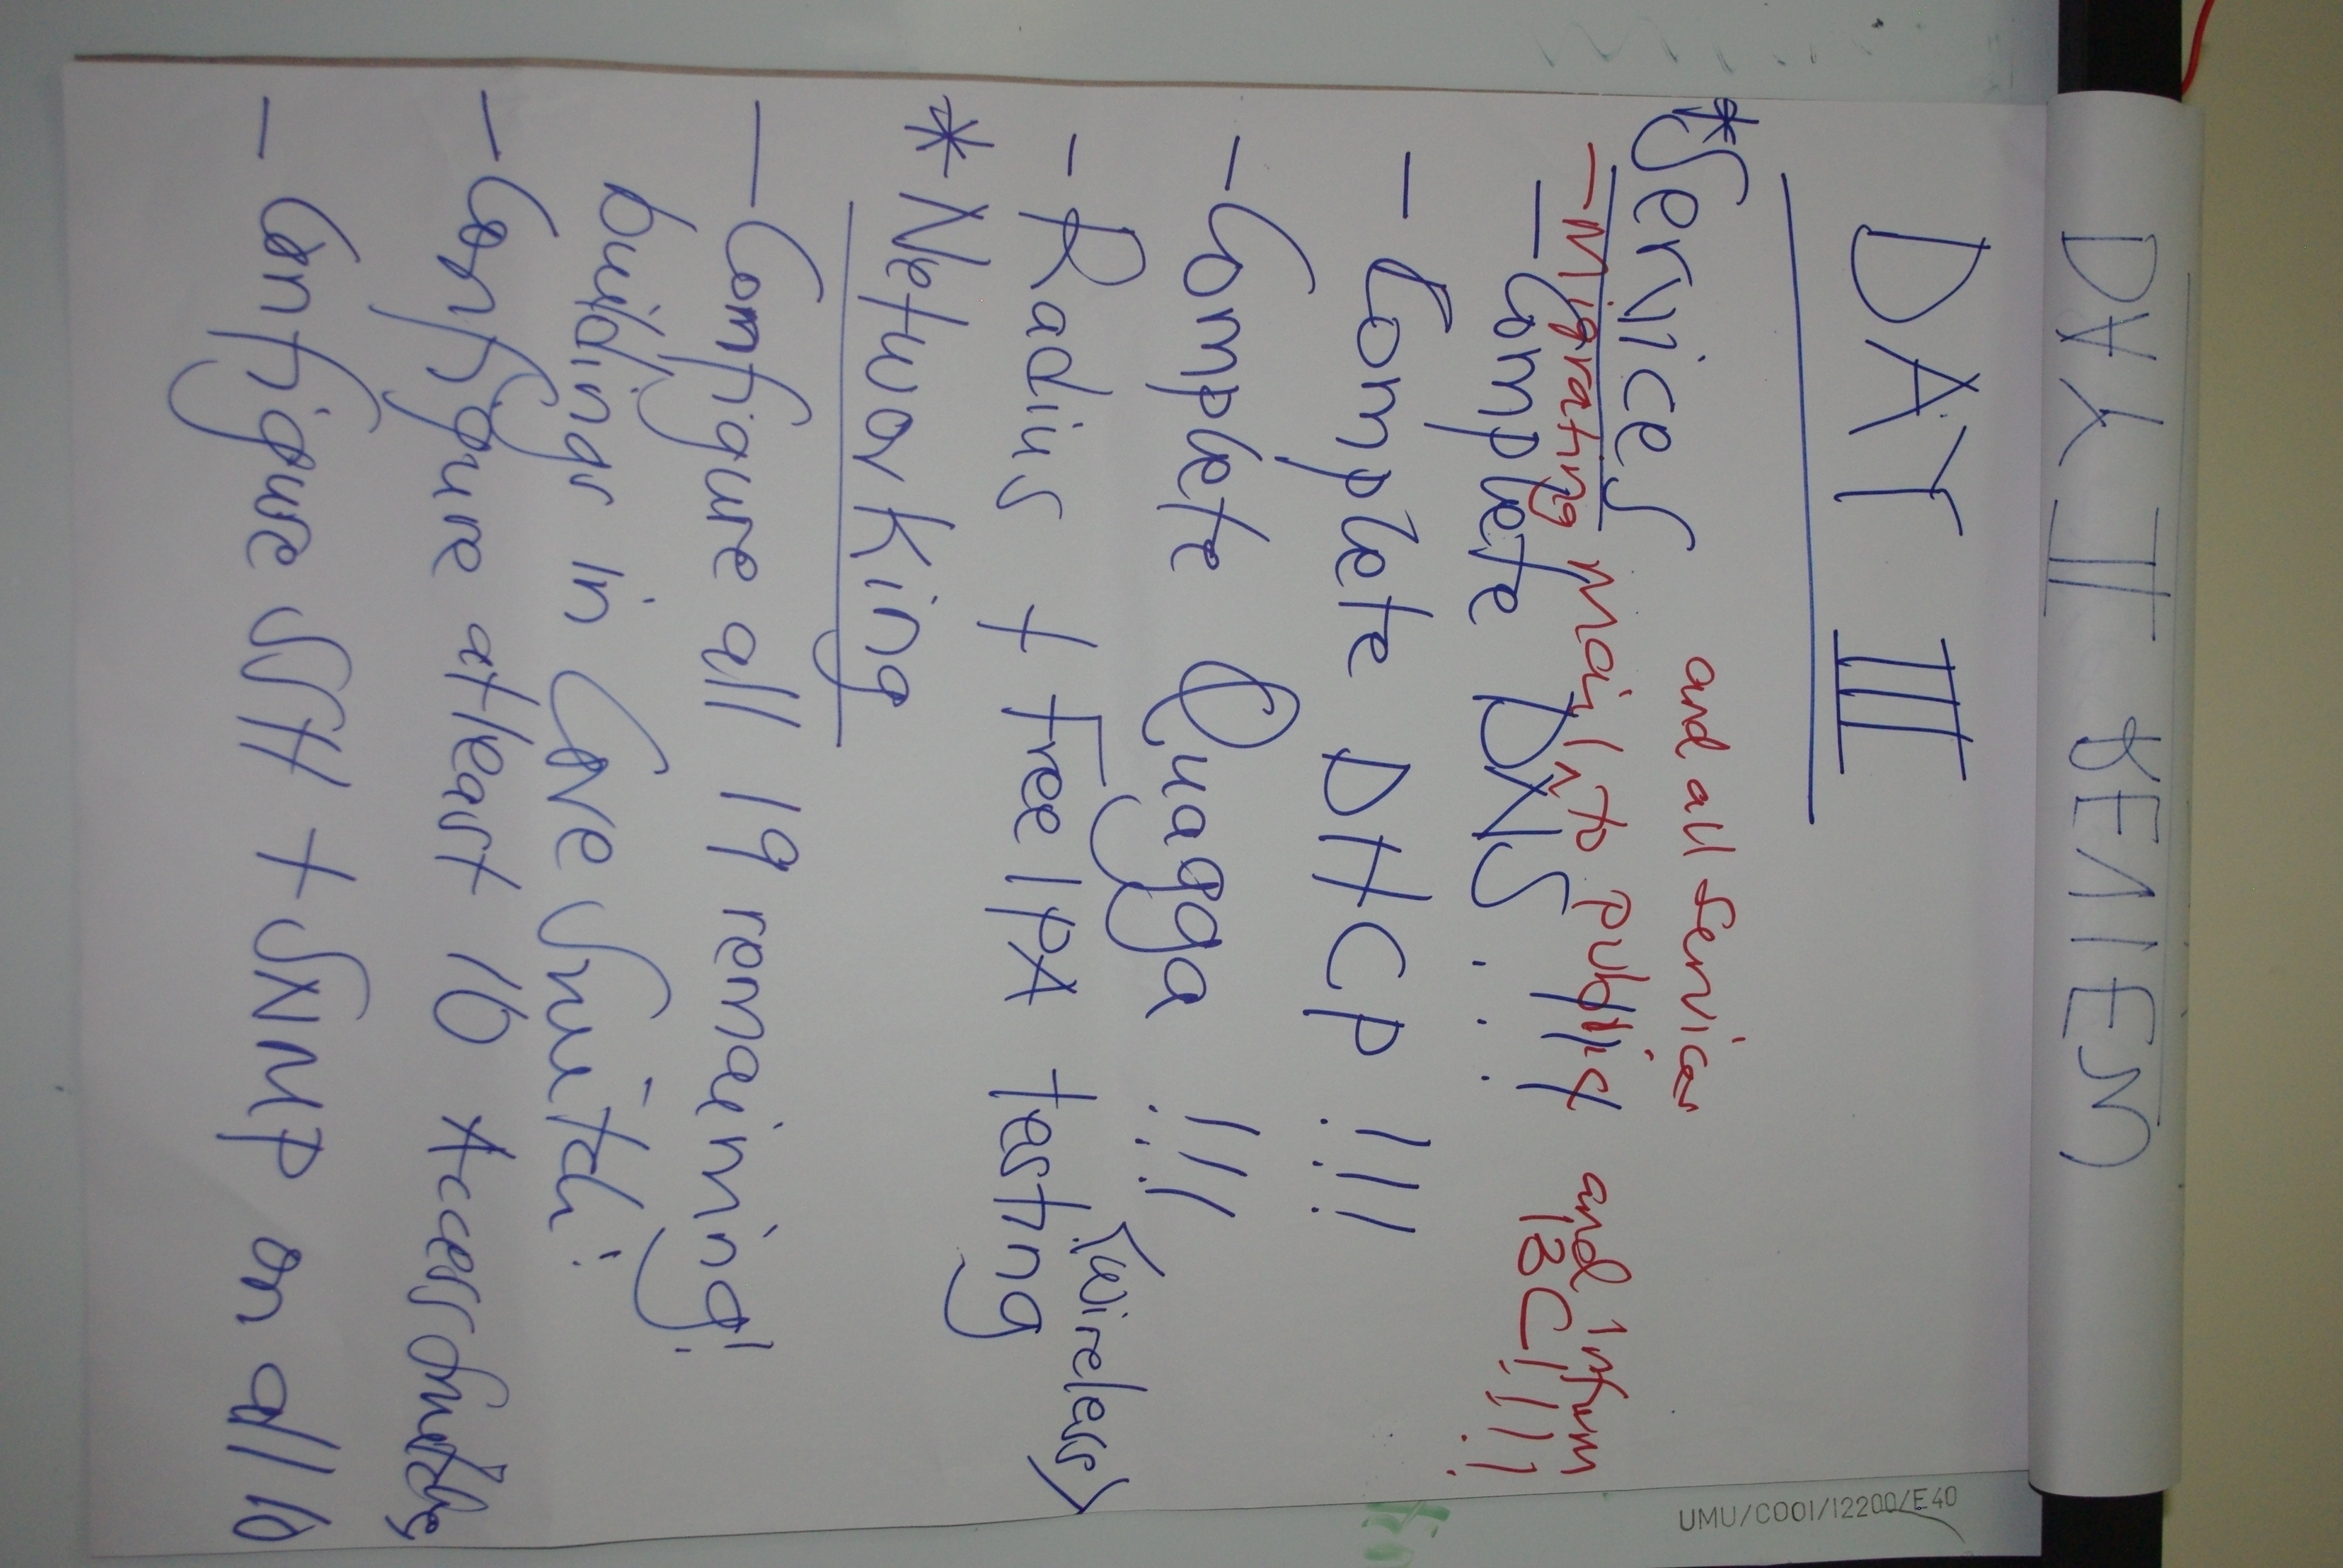 DAY III
* Services
and all services
- Migrating mail to public and inform
BCI!!!!
- Complete DNS !!!
- Complete DHCP !!!
- Complete Quagga !!!
- Radius + FreeIPA testing (wireless)
* Networking
- Configure all 19 remaining
buildings in Core Switch!
- Configure atleast 10 Access switches
- Configure SSH + SNMP on all 10
UMU/COOI/12200/E40